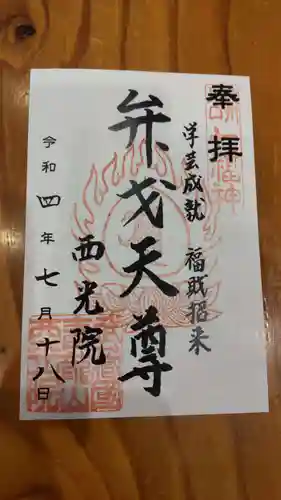 奉拝
学芸成就 福戝招来
弁戈天尊
西光院
令和四年七月十八日